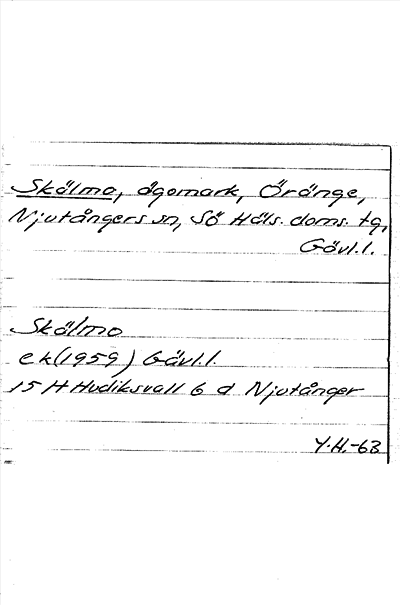 Skälmo, ägomark, Öränge,
Njutångers sn, Sö Häls. doms. tg,
Gävl. l.
Skälmo
ek (1959) Gävl. l.
15 H Hudiksvall 6 d Njutånger
Y.H.-63